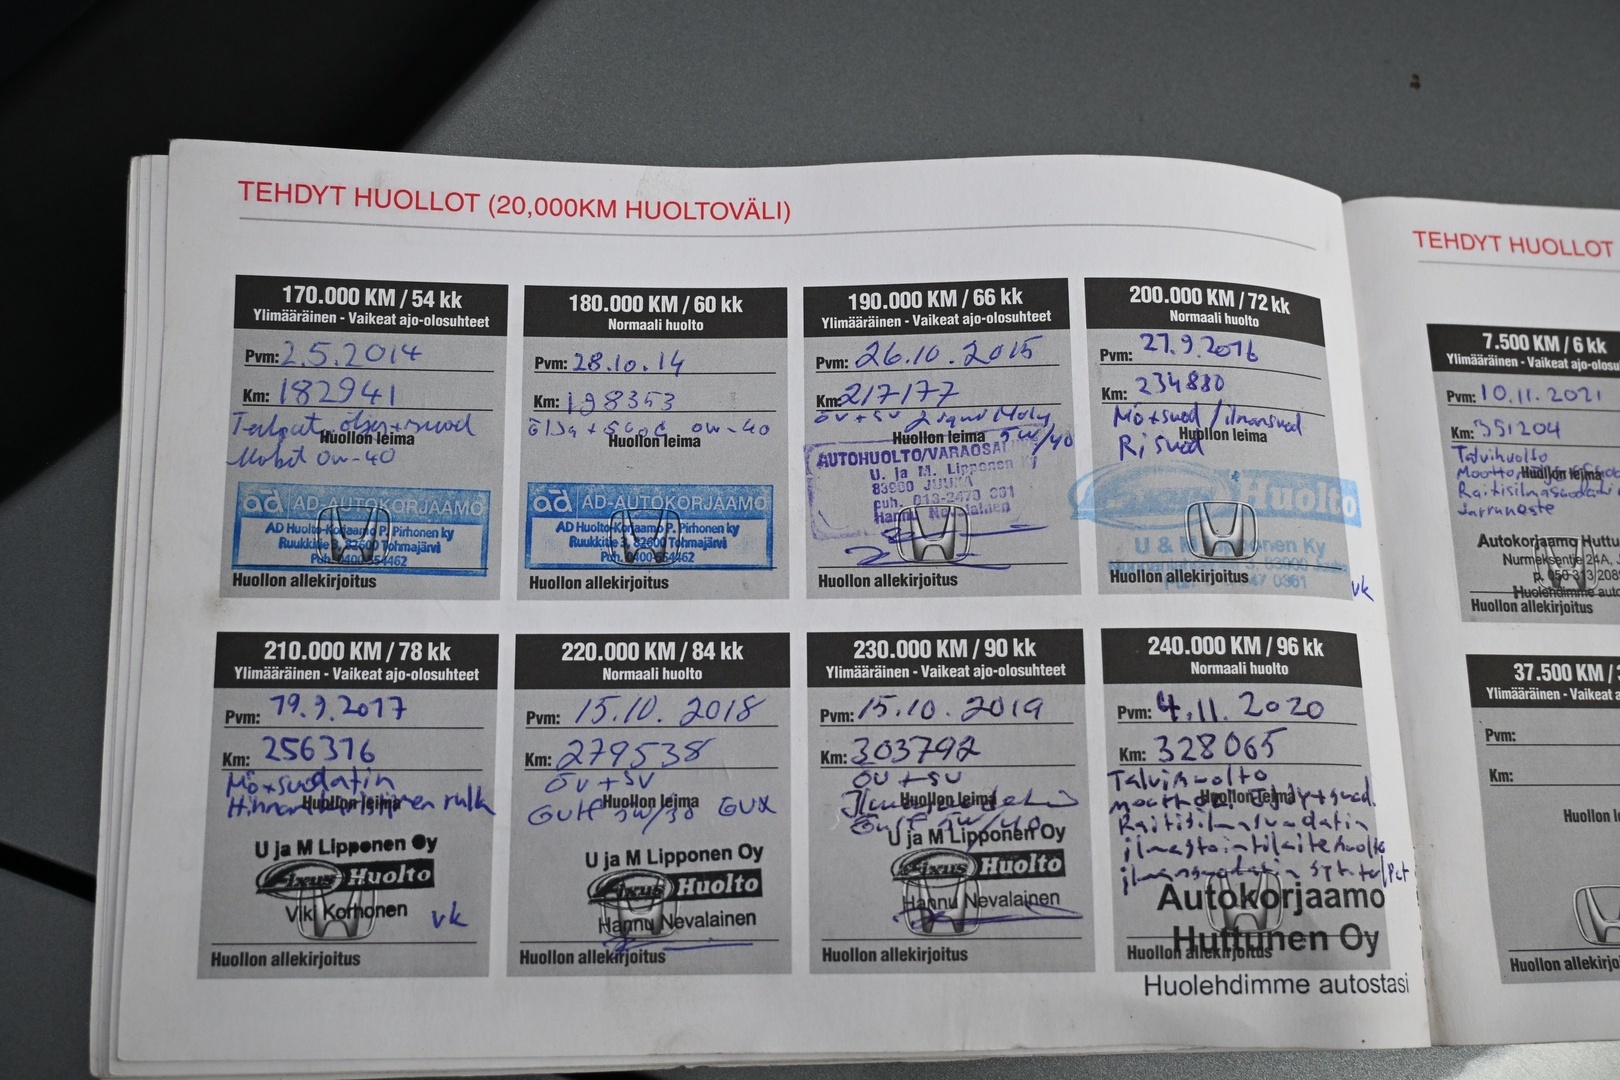 TEHDYT HUOLLOT (20,000KM HUOLTOVÄLI)
170.000 KM / 54 kk
Ylimääräinen - Vaikeat ajo-olosuhteet
Pvm: 2.5.2014
Km: 182941
Huollon leima
Mobil 0w-40
ad AD-AUTOKORJAAMO
AD Huolto-Korjaamo P. Pirhonen ky
Ruukkitie 3, 82600 Tohmajärvi
Puh. 0400-654462
Huollon allekirjoitus
180.000 KM / 60 kk
Normaali huolto
Pvm: 28.10.14
Km: 198353
0w-40
Huollon leima
ad AD-AUTOKORJAAMO
AD Huolto-Korjaamo P. Pirhonen ky
Ruukkitie 3, 82600 Tohmajärvi
Puh. 0400-654462
Huollon allekirjoitus
190.000 KM / 66 kk
Ylimääräinen - Vaikeat ajo-olosuhteet
Pvm: 26.10.2015
Km: 217177
öv + sv Liqui Moly
Huollon leima 5w/40
AUTOHUOLTO/VARAOSAT
U. ja M. Lipponen Ky
83900 JUUKA
puh. 013-2470 361
Hannu Nevalainen
Huollon allekirjoitus
200.000 KM / 72 kk
Normaali huolto
Pvm: 27.9.2016
Km: 234880
Mö+suod / ilmansuod
Huollon leima
Ri suod
Fixus Huolto
U & M Lipponen Ky
Huollon allekirjoitus
vk
210.000 KM / 78 kk
Ylimääräinen - Vaikeat ajo-olosuhteet
Pvm: 19.9.2017
Km: 256376
Mö+suodatin
Huollon leima
U ja M Lipponen Oy
Fixus Huolto
Vik Korhonen
vk
Huollon allekirjoitus
220.000 KM / 84 kk
Normaali huolto
Pvm: 15.10.2018
Km: 279538
öv + sv
Gulf 5w/30 GUX
Huollon leima
U ja M Lipponen Oy
Fixus Huolto
Hannu Nevalainen
Huollon allekirjoitus
230.000 KM / 90 kk
Ylimääräinen - Vaikeat ajo-olosuhteet
Pvm: 15.10.2019
Km: 303792
öv + sv
Huollon leima
Gulf 5w/40
U ja M Lipponen Oy
Fixus Huolto
Hannu Nevalainen
Huollon allekirjoitus
240.000 KM / 96 kk
Normaali huolto
Pvm: 4.11.2020
Km: 328065
Talvihuolto
Huollon leima
Raitisilmasuodatin
ilmastointilaitehuolto
ilmansuodatin
Autokorjaamo
Huttunen Oy
Huollon allekirjoitus
Huolehdimme autostasi
TEHDYT HUOLLOT
7.500 KM / 6 kk
Ylimääräinen - Vaikeat ajo-olosu
Pvm: 10.11.2021
Km: 351204
Talvihuolto
Huollon leima
Raitisilmasuodatin
Jarruneste
Autokorjaamo Huttu
Nurmeksentie 24A,
p. 050 313 208
Huolehdimme auto
Huollon allekirjoitus
37.500 KM /
Ylimääräinen - Vaikeat a
Pvm:
Km:
Huollon le
Huollon allekirjo